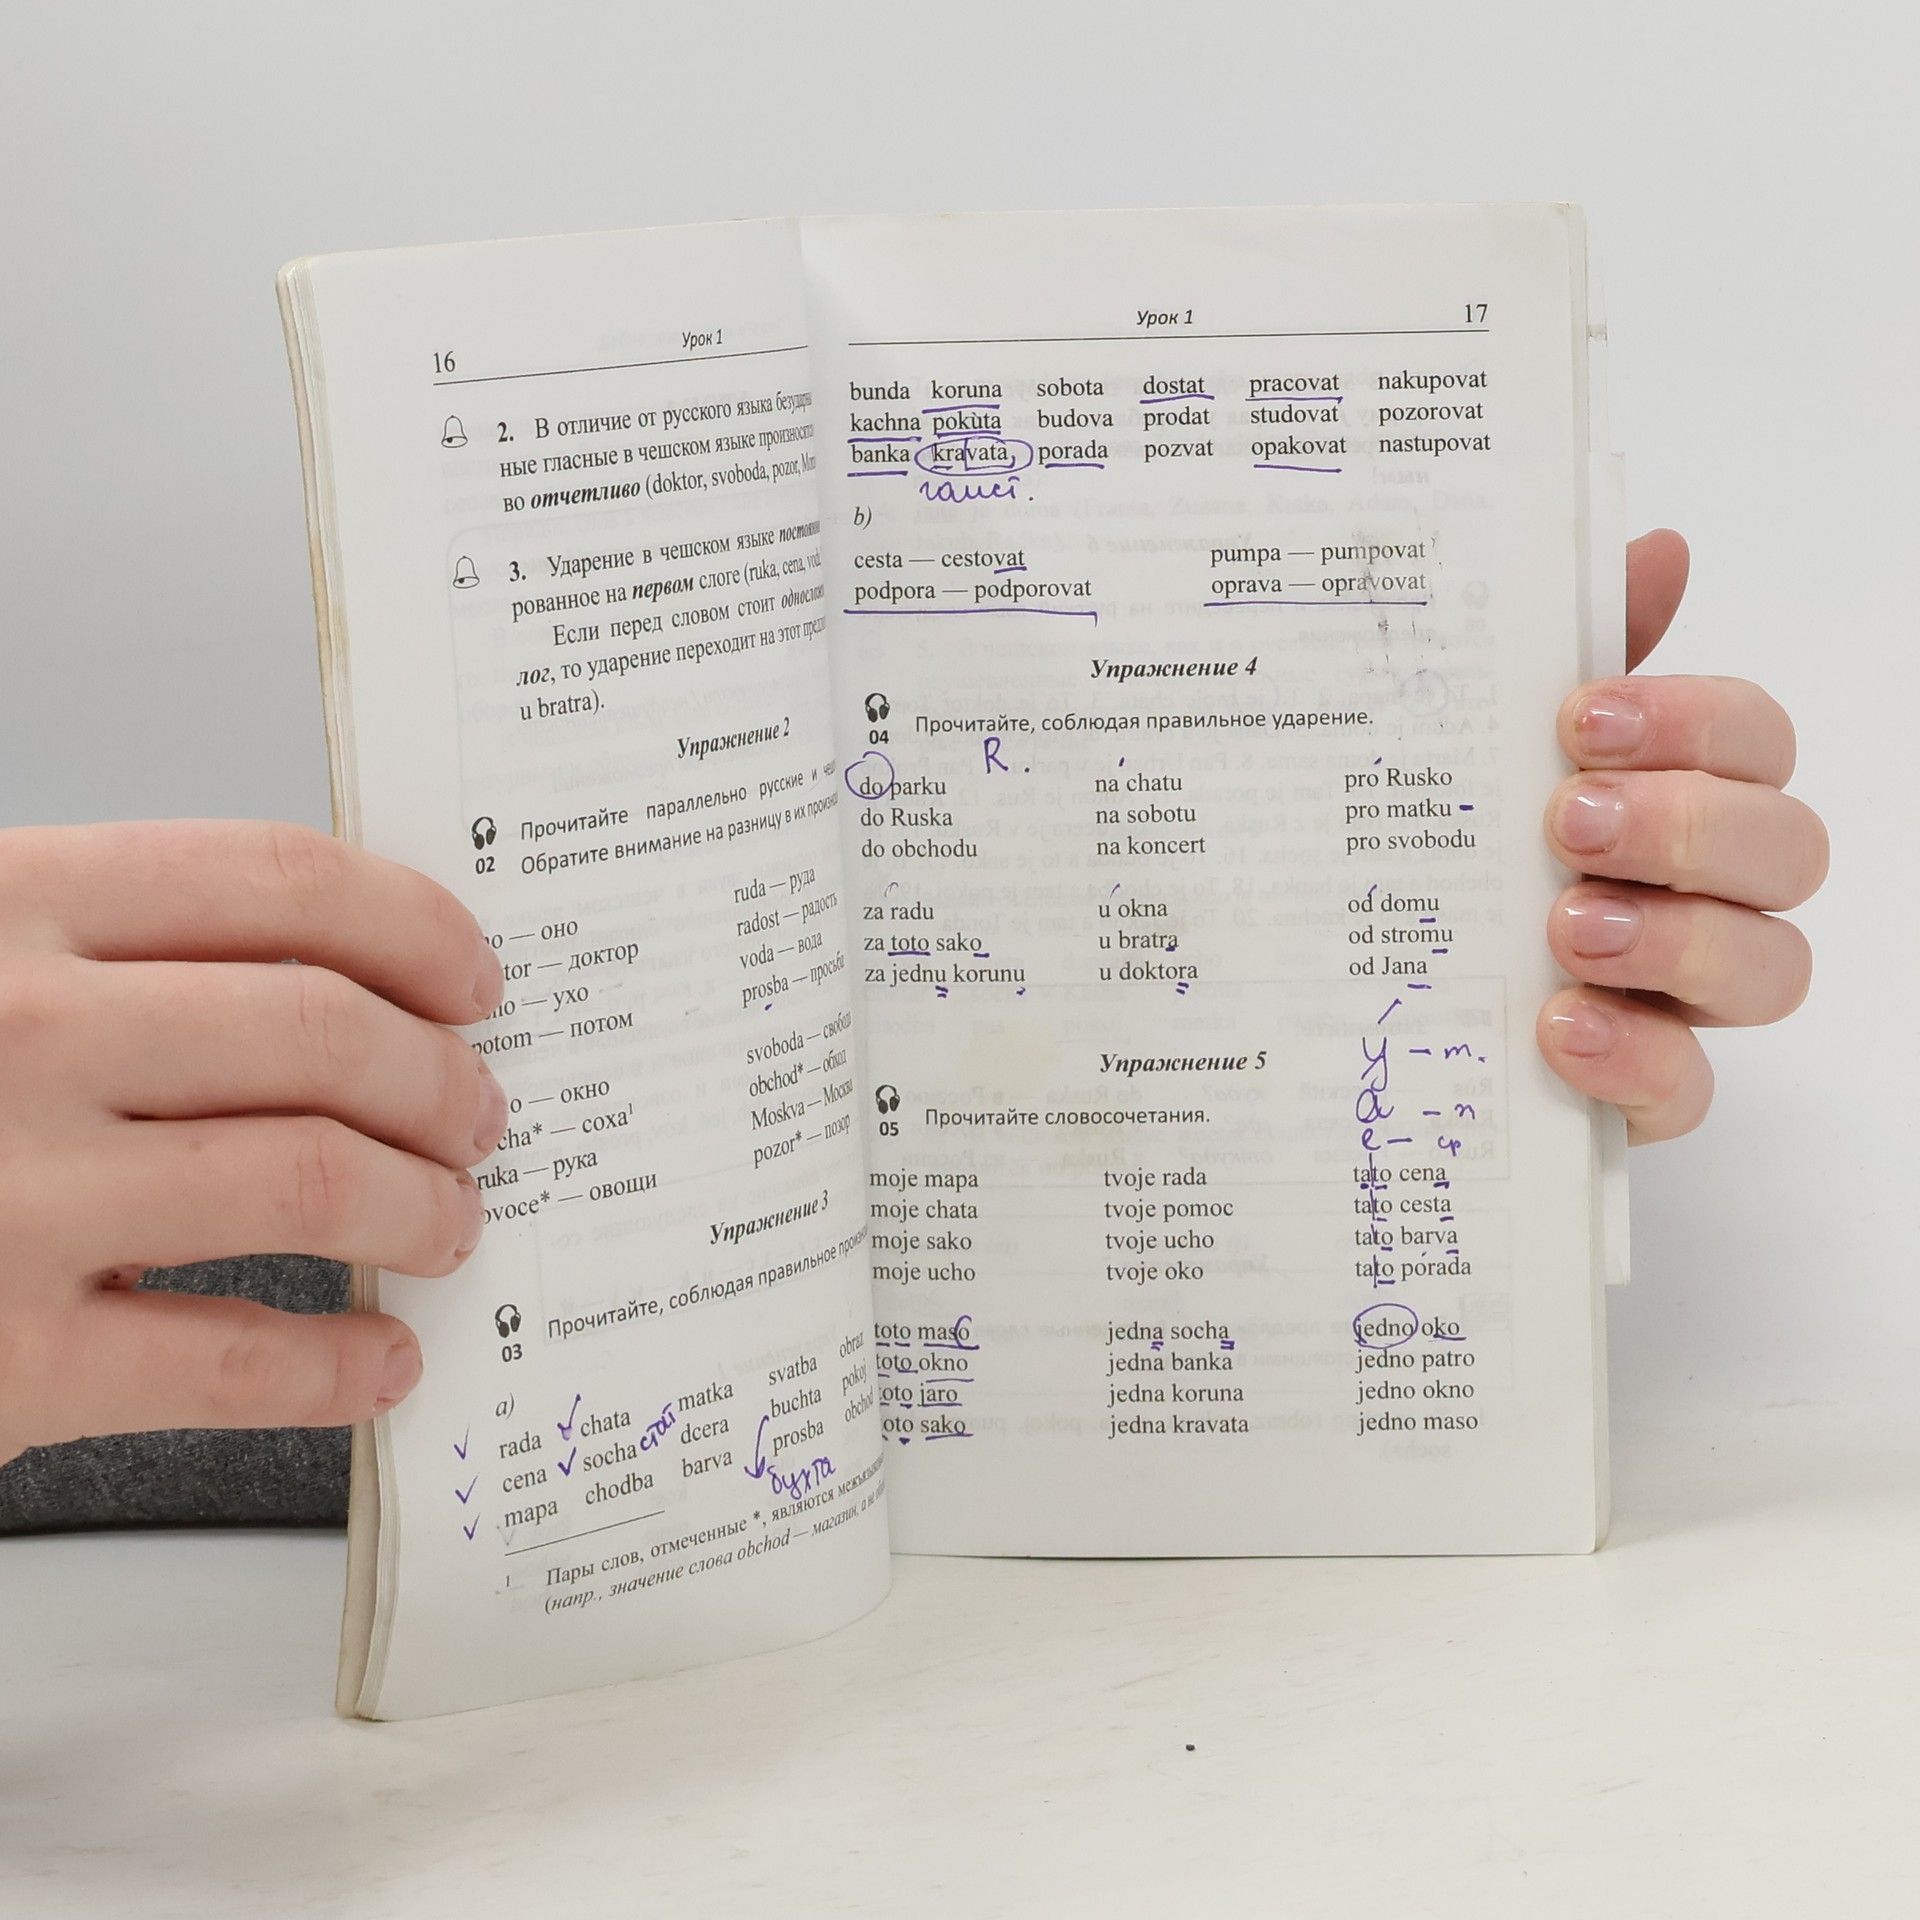 16
Урок 1
2. В отличие от русского языка
ные гласные в чешском языке
во отчетливо (doktor, svoboda, pozor,
3. Ударение в чешском языке
рованное на первом слоге (ruka, cena,
Если перед словом стоит
лог, то ударение переходит на этот
u bratra).
Упражнение 2
02
Прочитайте параллельно русские и
Обратите внимание на разницу в их
— оно
— доктор
— ухо
potom — потом
ruda — руда
radost — радость
voda — вода
prosba — просьба
— окно
— соха¹
ruka — рука
ovoce* — овощи
svoboda — свобода
obchod* — обход
Moskva — Москва
pozor* — позор
Упражнение 3
03
Прочитайте, соблюдая правильное
a)
rada chata matka svatba obraz
cena socha dcera buchta pokoj
mapa chodba barva prosba obchod
бухта
1 Пары слов, отмеченные *, являются
(напр., значение слова obchod — магазин, а не
Урок 1
17
bunda koruna sobota dostat pracovat nakupovat
kachna pokuta budova prodat studovat pozorovat
banka kravata, porada pozvat opakovat nastupovat
b)
cesta — cestovat pumpa — pumpovat
podpora — podporovat oprava — opravovat
Упражнение 4
04
Прочитайте, соблюдая правильное ударение.
R.
do parku na chatu pro Rusko
do Ruska na sobotu pro matku
do obchodu na koncert pro svobodu
za radu u okna od domu
za toto sako u bratra od stromu
za jednu korunu u doktora od Jana
Упражнение 5
y – m.
a – n
e – ср
05
Прочитайте словосочетания.
moje mapa tvoje rada tato cena
moje chata tvoje pomoc tato cesta
moje sako tvoje ucho tato barva
moje ucho tvoje oko tato porada
toto maso jedna socha jedno oko
toto okno jedna banka jedno patro
toto jaro jedna koruna jedno okno
toto sako jedna kravata jedno maso